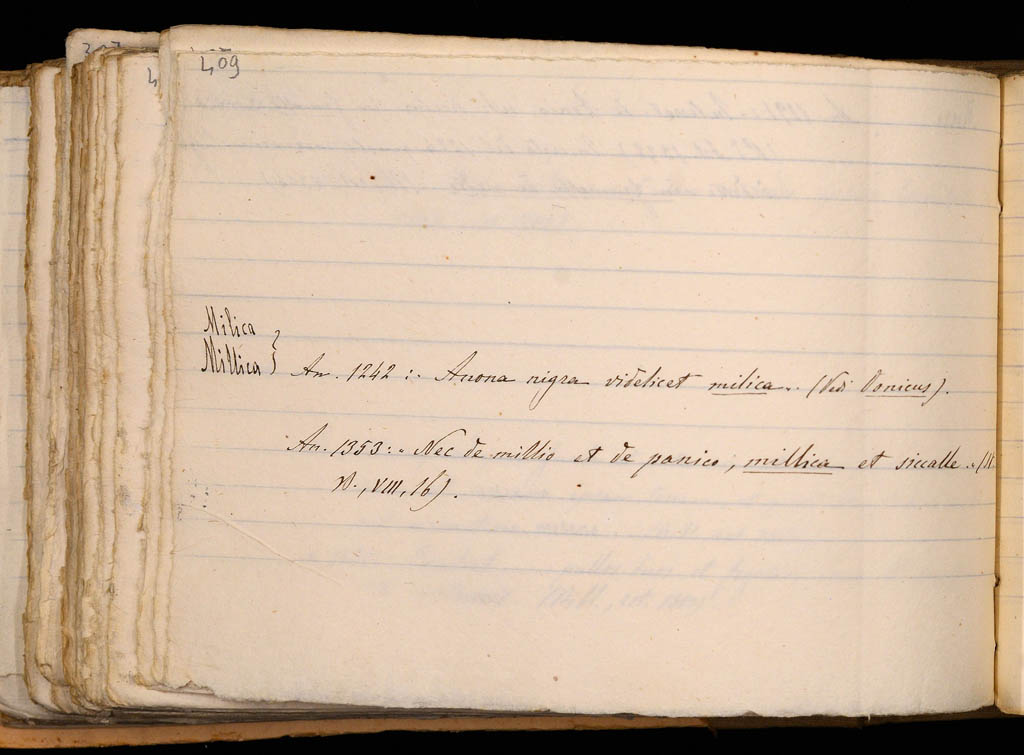 409
Milica
Millica }
An. 1242 :. Anona nigra videlicet milica .. (Vedi Donicus).
An. 1353 : „ Nec de millio et de panico, millica et siccalle. „ (St.
V., VIII, 16).